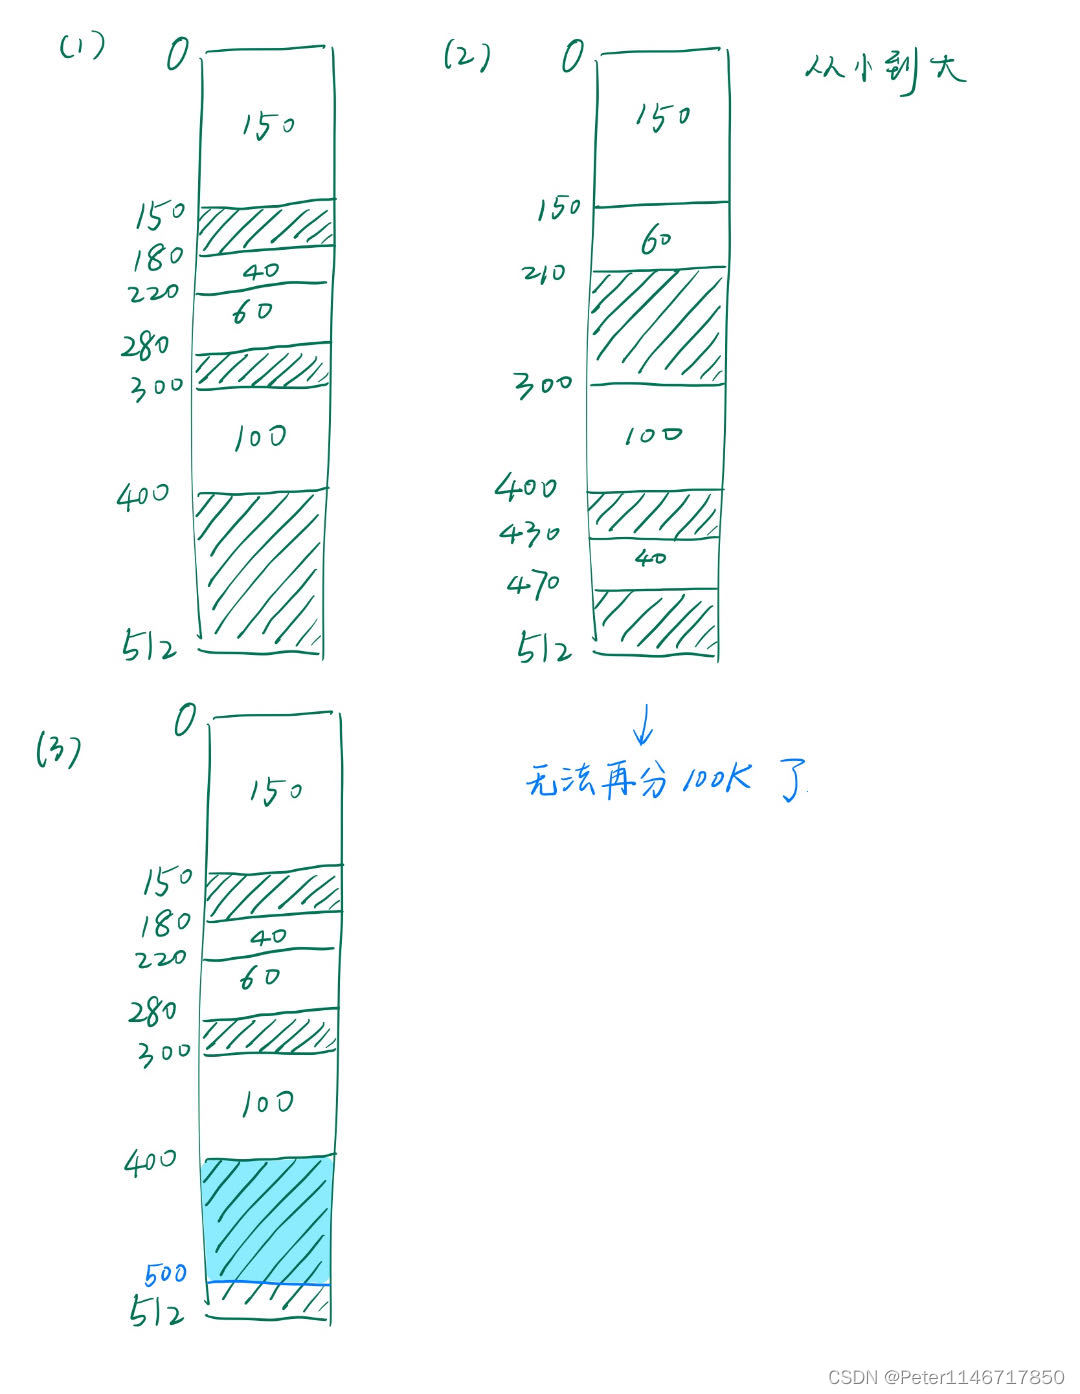 (1)
0
150
150
180
40
220
60
280
300
100
400
512
(2)
0
从小到大
150
150
60
210
300
100
400
430
40
470
512
无法再分100K了
(3)
0
150
150
180
40
220
60
280
300
100
400
500
512
CSDN @Peter1146717850